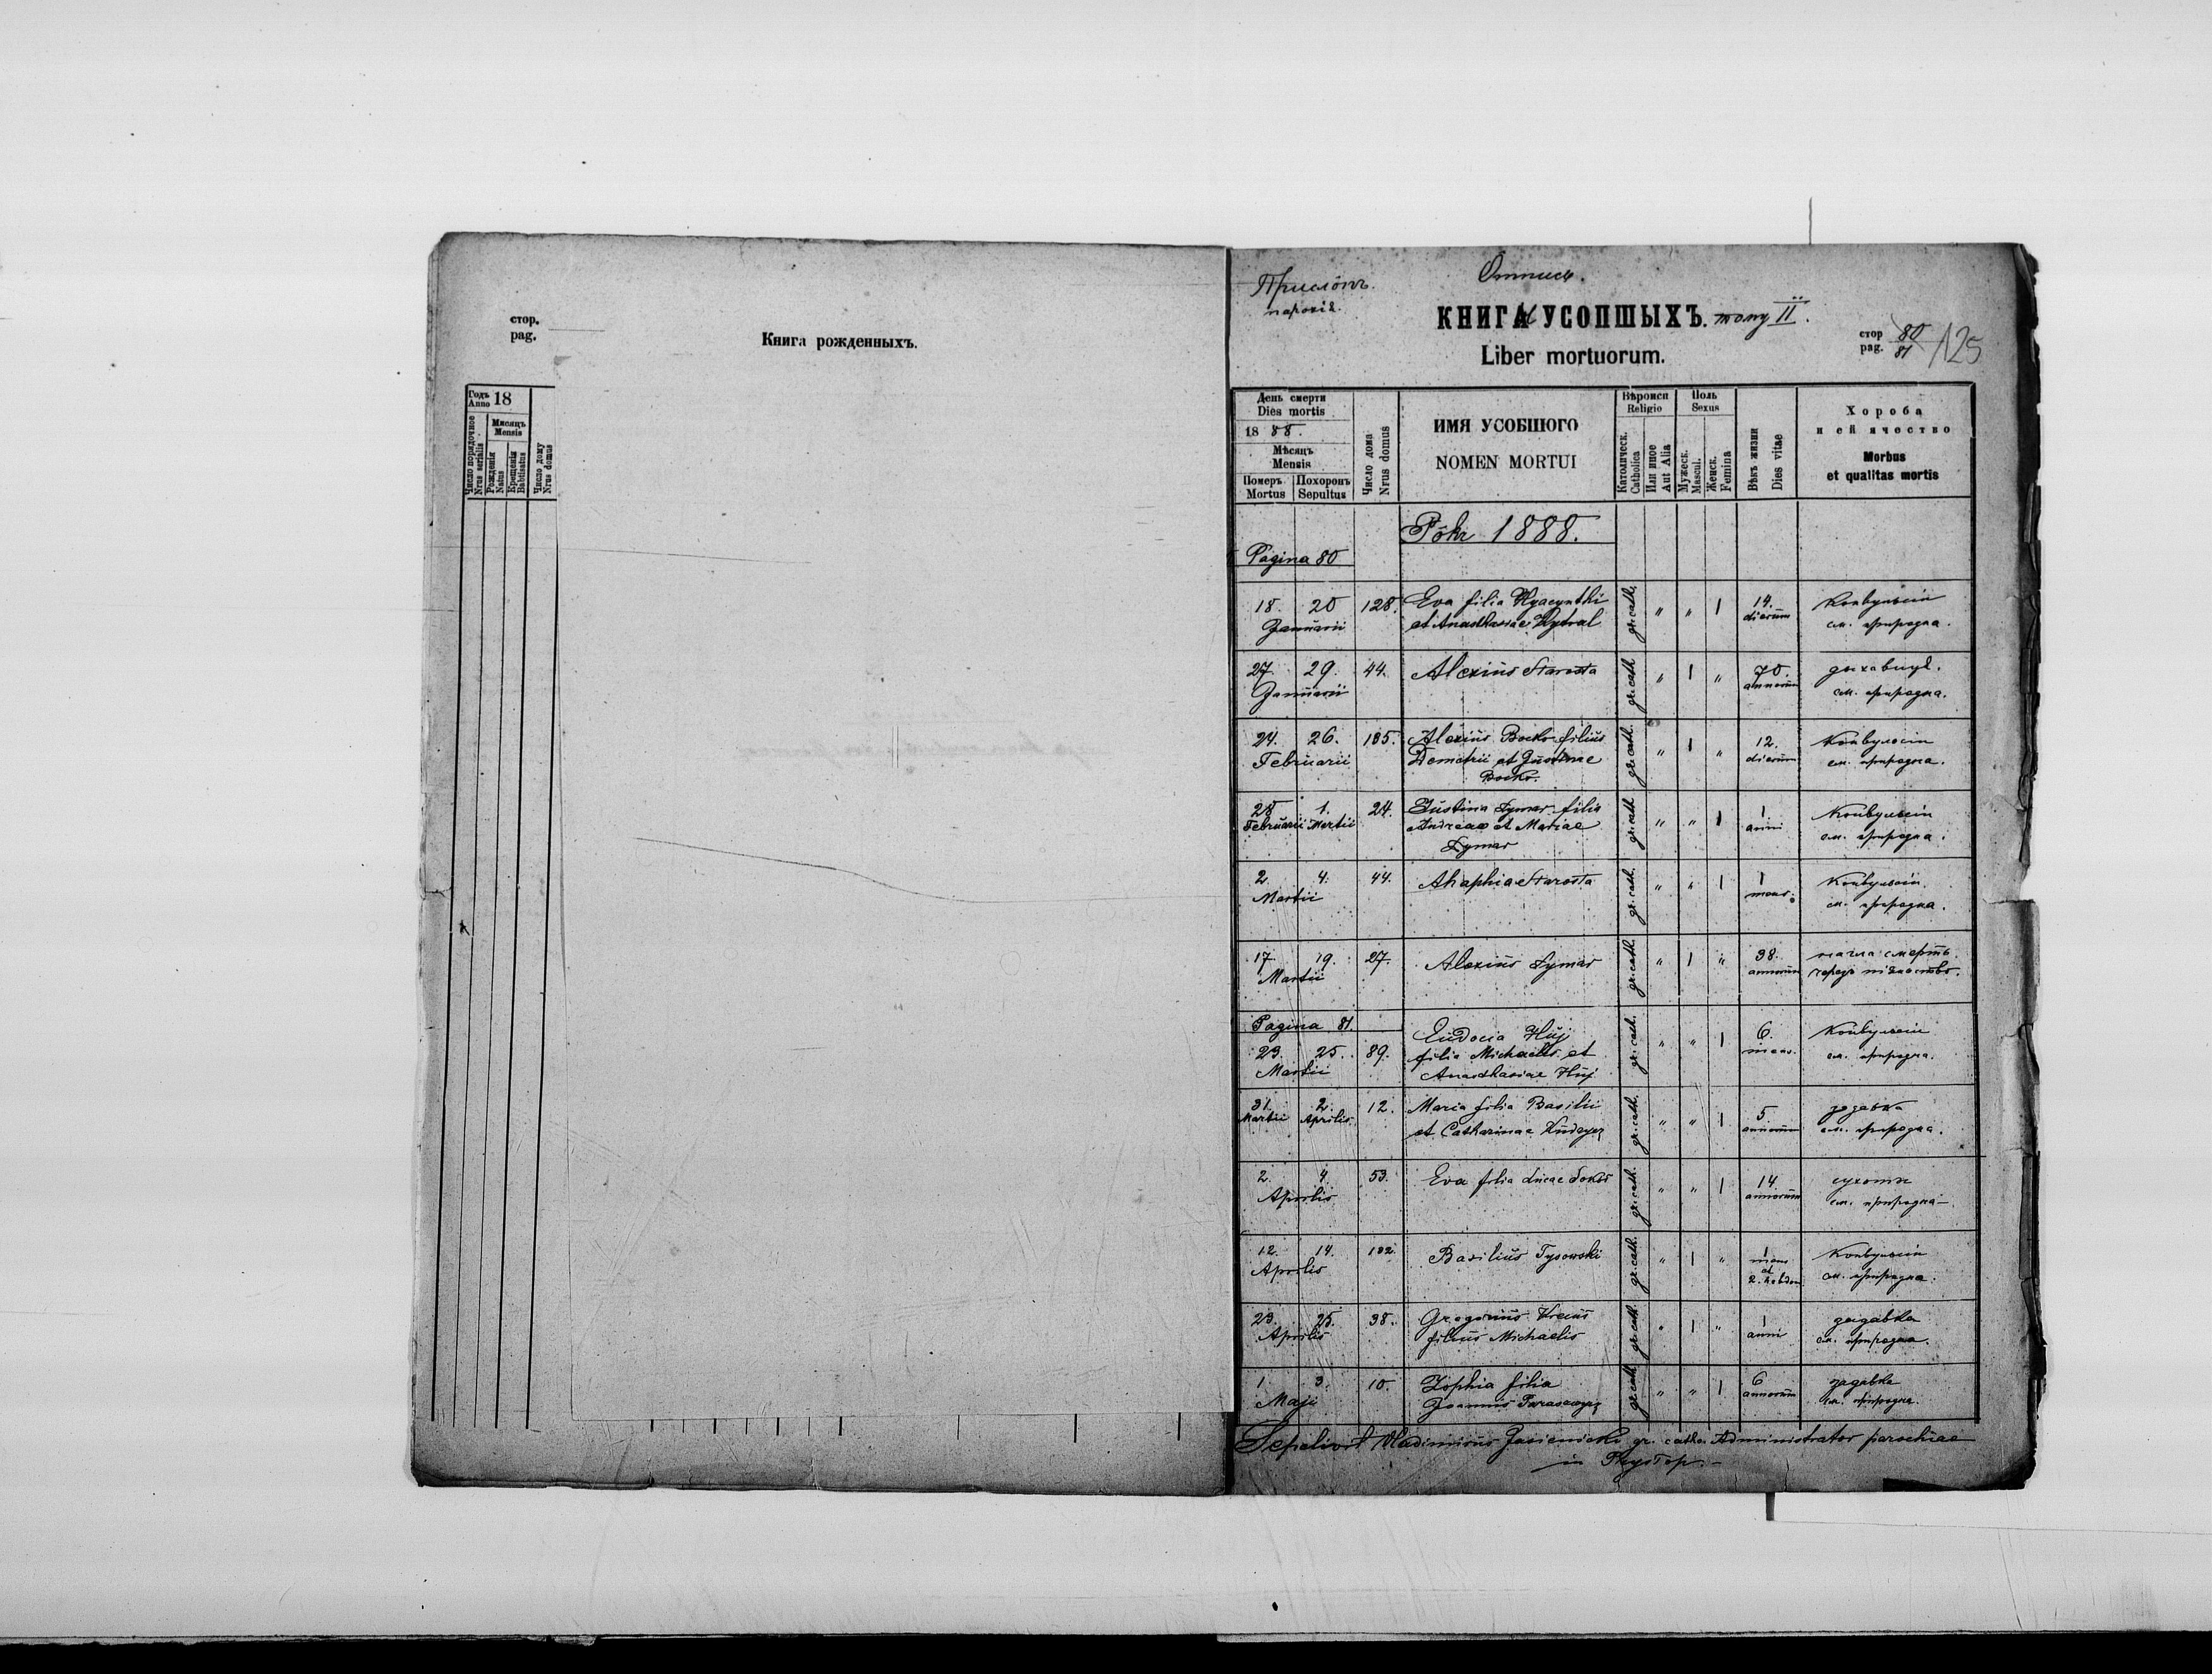 стор.
pag.
Книга рожденныхъ.
Годъ
Anno 18
Число порядочное
Nrus serialis
Мисяць
Mensis
Рожденія
Natus
Крещенія
Babtisatus
Число дому
Nrus domus
парохія.
КНИГА УСОПШЫХЪ. тому II.
Liber mortuorum.
стор
pag.
80
81
125
День смерти
Dies mortis
18 88.
Мѣсяцъ
Mensis
Померъ
Mortus
Похоронъ
Sepultus
Число дома
Nrus domus
ИМЯ УСОБШОГО
NOMEN MORTUI
Вѣроисп
Religio
Католическ.
Catholica
Или иное
Aut Alia
Поль
Sexus
Мужеск.
Mascul.
Женск.
Femina
Вѣкъ жизни
Dies vitae
Хороба
и ей ячество
Morbus
et qualitas mortis
Рôкъ 1888.
Pagina 80
18. 20 128. Eva filia Hyacynthi gr. cath. " " 1 14. Конвульсіи
Januarii et Anasthasiae dierum см. природна.
27. 29. 44. Alexius Starosta gr. cath. " 1 " 70. дыхавиця.
Januarii annorum см. природна.
24. 26. 185. Alexius Bocko filius gr. cath. " 1 " 12. Конвульсіи
Februarii Demetrii et Justinae dierum см. природна.
Bocko.
28 1. 24. Justina Dymar filia gr. cath. " " 1 1 Конвульсіи
Februarii Martii Andreae et Mariae anni см. природна.
Dymar
2. 4. 44. Ahaphia Starosta gr. cath. " " 1 1 Конвульсіи
Martii mens. см. природна.
17. 19. 27. Alexius Dymar gr. cath. " 1 " 38. нагла смерть
Martii annorum черезъ піяньство.
Pagina 81.
23. 25. 89. Eudocia Huj gr. cath. " " 1 6. Конвульсіи
Martii filia Michaelis et mens. см. природна.
Anasthasiae Huj
31. 2. 12. Maria filia Basilii gr. cath. " " 1 5. задавка
Martii Aprilis et Catharinae annorum см. природна.
2. 4. 53. Eva filia Lucae gr. cath. " " 1 14. сухоты
Aprilis annorum см. природна
12. 14. 182. Basilius Tysowski gr. cath. " 1 " 1 Конвульсіи
Aprilis mens et 2. hebdom см. природна.
23. 25. 38. Gregorius gr. cath. " 1 " 1 задавка
Aprilis filius Michaelis anni см. природна.
1 3. 10. Zophia filia gr. cath. " " 1 6 задавка
Maji Joannis annorum см. природна.
Sepelivit Vladimirus Jasienicki gr. cath. Administrator parochiae
in